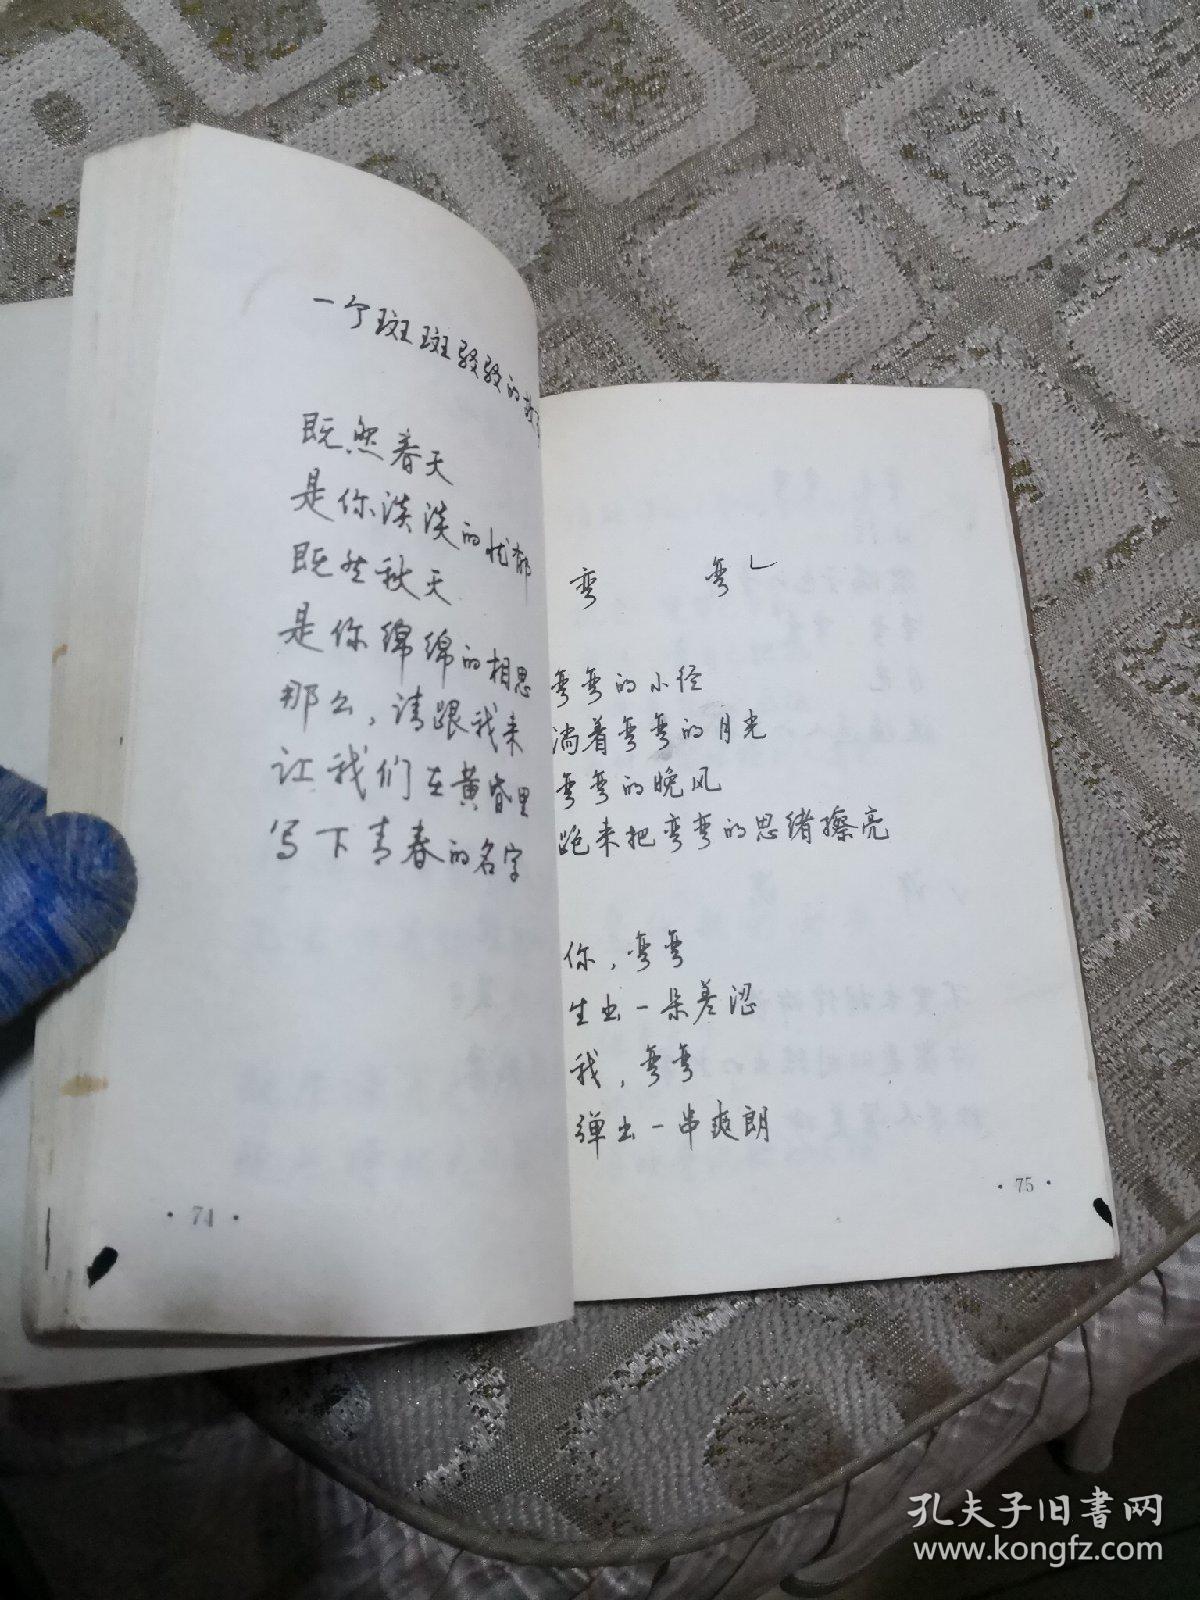 一个斑斑驳驳的故
既然春天
是你淡淡的忧郁
既然秋天
是你绵绵的相思
那么，请跟我来
让我们在黄昏里
写下青春的名字
· 74 ·
弯 弯
弯弯的小径
淌着弯弯的月光
弯弯的晚风
跑来把弯弯的思绪擦亮
你，弯弯
生出一朵羞涩
我，弯弯
弹出一串爽朗
· 75 ·
孔夫子旧书网
www.kongfz.com